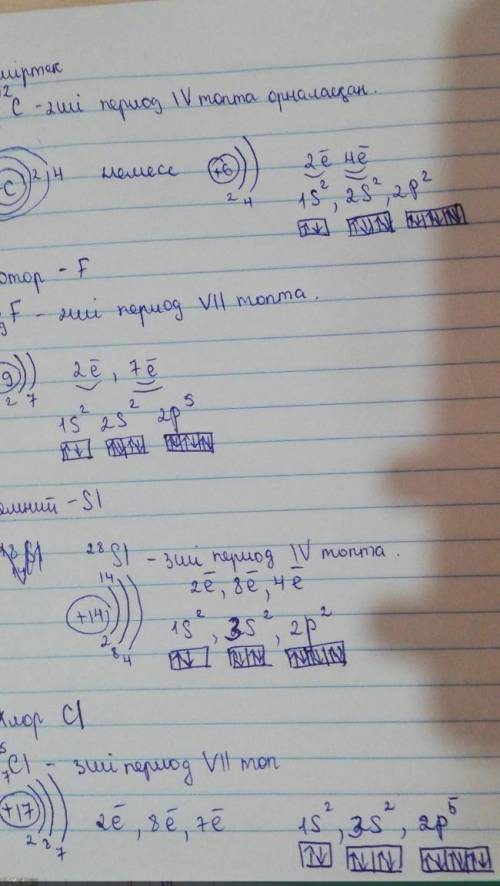 12
C - 2ші период IV топта орналасқан.
C 2 4 немесе +6 2 4 2ē 4ē
1S², 2S², 2p²
F
9 F - 2ші период VII топта.
9 2 7 2ē, 7ē
1S² 2S² 2p⁵
- SI
28 SI - 3ші период IV топта.
14
2ē, 8ē, 4ē
+14 2 8 4 1S², 3S², 2p²
хлор Cl
Cl - 3ші период VII топ
+17 2 8 7 2ē, 8ē, 7ē 1S², 3S², 2p⁵